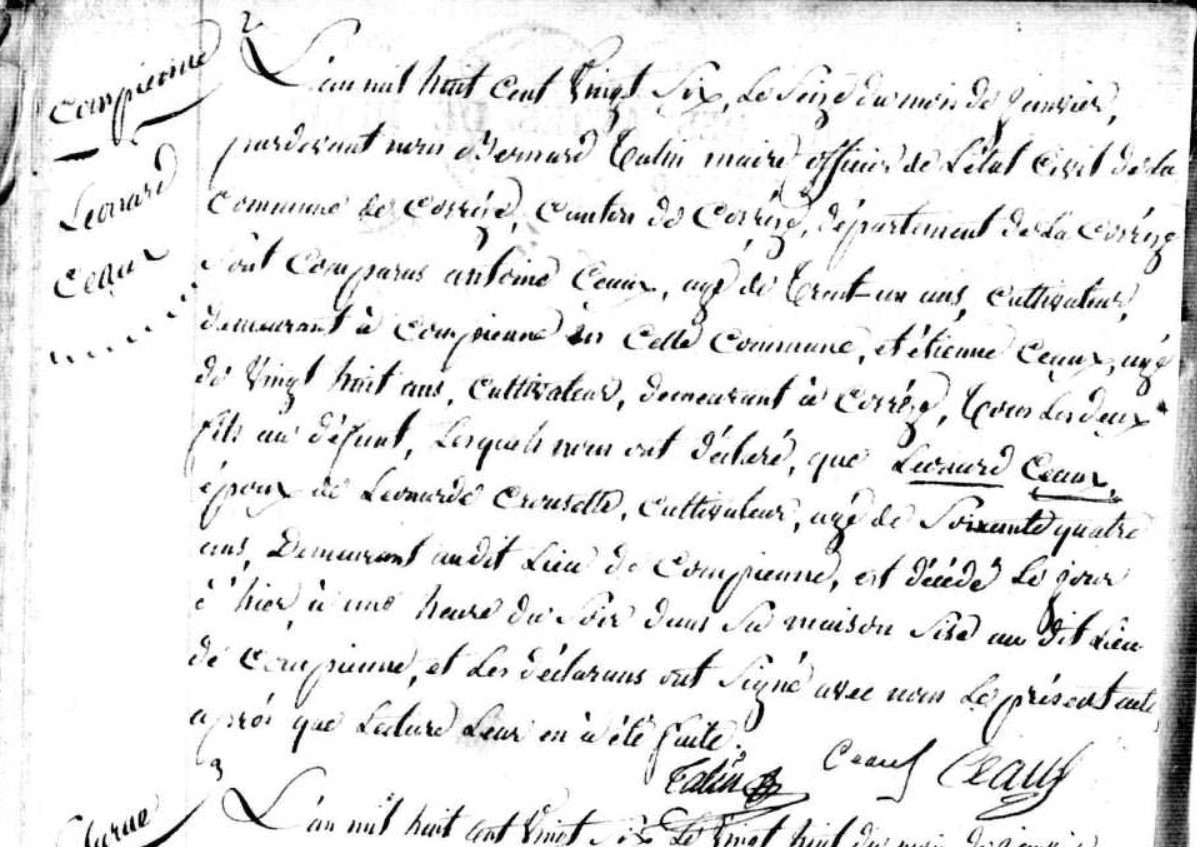 2
Compienne
Leonard
Ceaux
L'an mil huit cent vingt six, le seize du mois de janvier,
pardevant nous Bernard Talin maire officier de l'état civil de la
commune de Corrèze, canton de Corrèze, département de la Corrèze
sont comparus antoine Ceaux, agé de trent-un ans, cultivateur,
demeurant à Compienne en cette commune, et étienne Ceaux, agé
de vingt huit ans, cultivateur, demeurant à Corrèze, tous les deux
fils au défunt, lesquels nous ont déclaré, que Leonard Ceaux,
époux de Leonarde Crouselle, cultivateur, agé de soixante quatre
ans, demeurant audit lieu de Compienne, est décédé le jour
d'hier, à une heure du soir dans sa maison sise au dit lieu
de Compienne, et les déclarans ont signé avec nous le présent acte,
après que lecture leur en à été faite.
Talin Ceaux Ceaux
3
L'an mil huit cent vingt six le vingt huit du mois de janvier